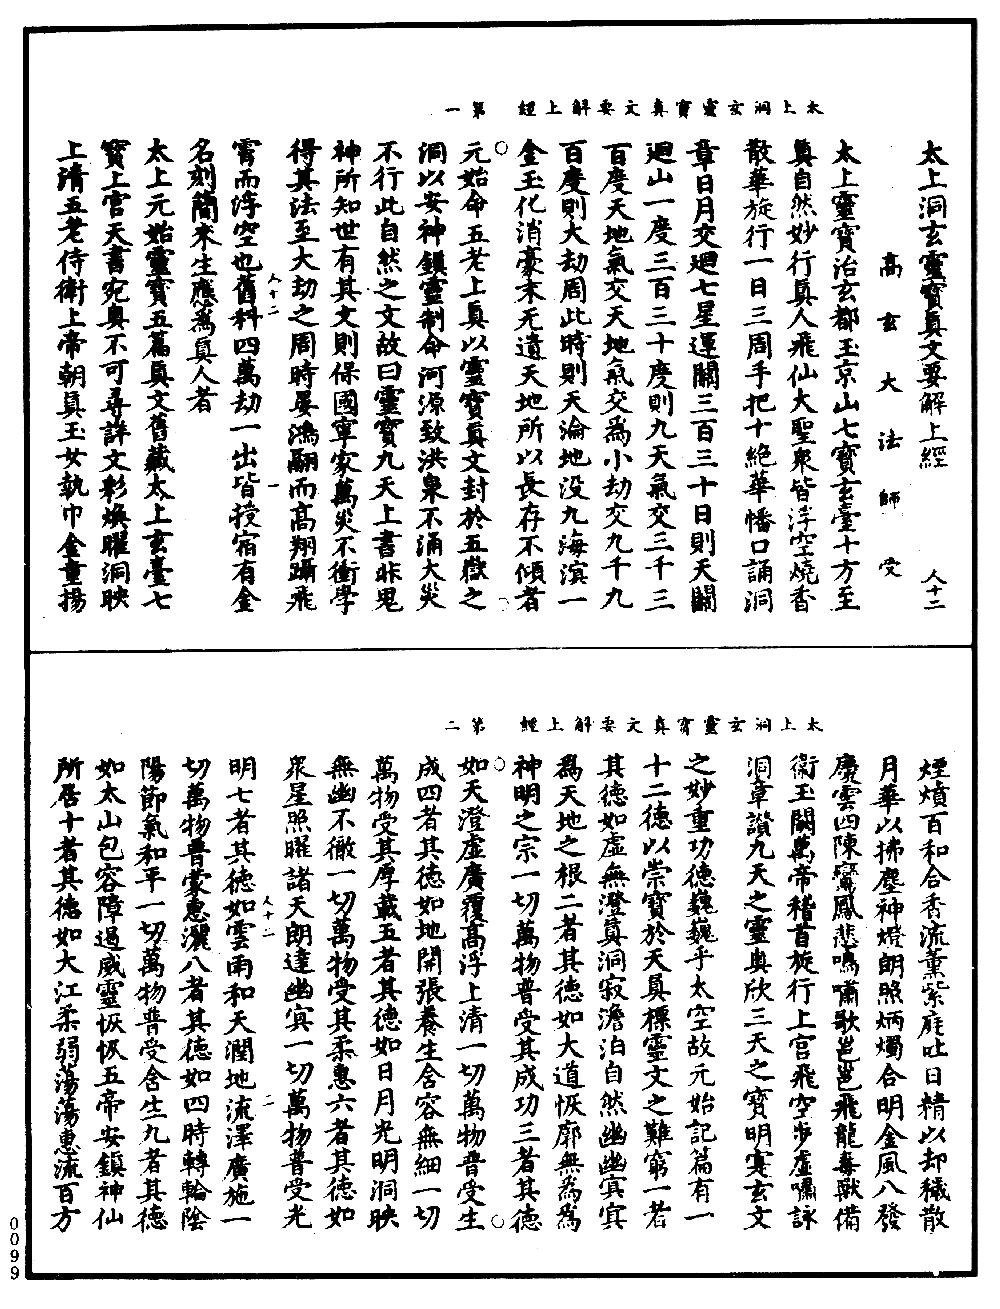 太上洞玄靈寶真文要解上經　第一
太上洞玄靈寶真文要解上經　人十二
高玄大法師受
太上靈寶治玄都玉京山七寶玄臺十方至
真自然妙行真人飛仙大聖衆皆浮空燒香
散華旋行一日三周手把十絶華幡口誦洞
章日月交迴七星運關三百三十日則天關
迴山一度三百三十度則九天氣交三千三
百度天地氣交天地氣交為小劫交九千九
百度則大劫周此時則天淪地没九海溟一
金玉化消豪末无遺天地所以長存不傾者
元始命五老上真以靈寶真文封於五嶽之
洞以安神鎮靈制命河源致洪泉不涌大災
不行此自然之文故曰靈寶九天上書非鬼
神所知世有其文則保國寧家萬災不衝學
得其法至大劫之周時晏鴻翮而高翔躡飛
霄而浮空也舊科四萬劫一出皆授宿有金
人十二　一
名刻簡來生應為真人者
太上元始靈寶五篇真文舊藏太上玄臺七
寶上宮天書宛奥不可尋詳文彩煥曜洞映
上清五老侍衛上帝朝真玉女執巾金童揚
太上洞玄靈寶真文要解上經　第二
煙燌百和合香流薰紫庭吐日精以却穢散
月華以拂塵神燈朗照炳燭合明金風八發
慶雲四陳鸞鳳悲鳴嘯歌邕邕飛龍毒獸備
衛玉闕萬帝稽首旋行上宮飛空步虛嘯詠
洞章讃九天之靈奥欣三天之寶明寔玄文
之妙重功德巍巍乎太空故元始記篇有一
十二德以崇寶於天真標靈文之難窮一者
其德如虛無澄真洞寂澹泊自然幽幽冥冥
為天地之根二者其德如大道恢廓無為為
神明之宗一切萬物普受其成功三者其德
如天澄虛廣覆高浮上清一切萬物普受生
成四者其德如地開張養生含容無細一切
萬物受其厚載五者其德如日月光明洞映
無幽不徹一切萬物受其柔惠六者其德如
衆星照曜諸天朗達幽冥一切萬物普受光
明七者其德如雲雨和天潤地流澤廣施一
人十二　二
切萬物普蒙惠灑八者其德如四時轉輪陰
陽節氣和平一切萬物普受含生九者其德
如太山包容障過威靈恢恢五帝安鎮神仙
所居十者其德如大江柔弱蕩蕩惠流百方
0099